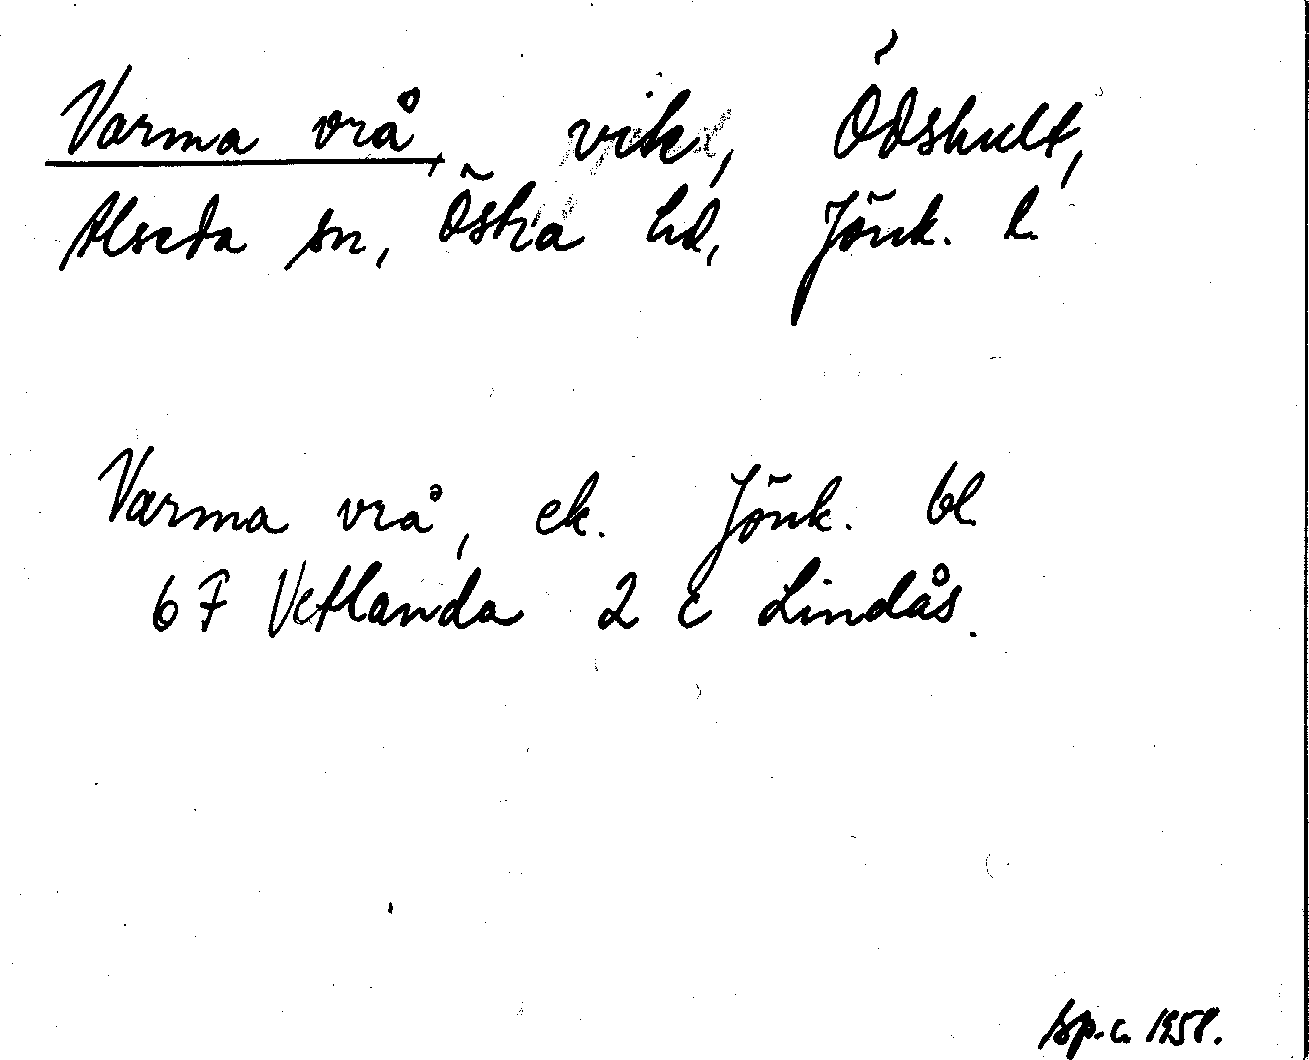 Varma vrå, vik, Ödshult,
Alseda sn, Östra hd, Jönk. l.
Varma vrå, ek. Jönk. bl.
67 Vetlanda 2 c Lindås.
Sp.c. 1958.